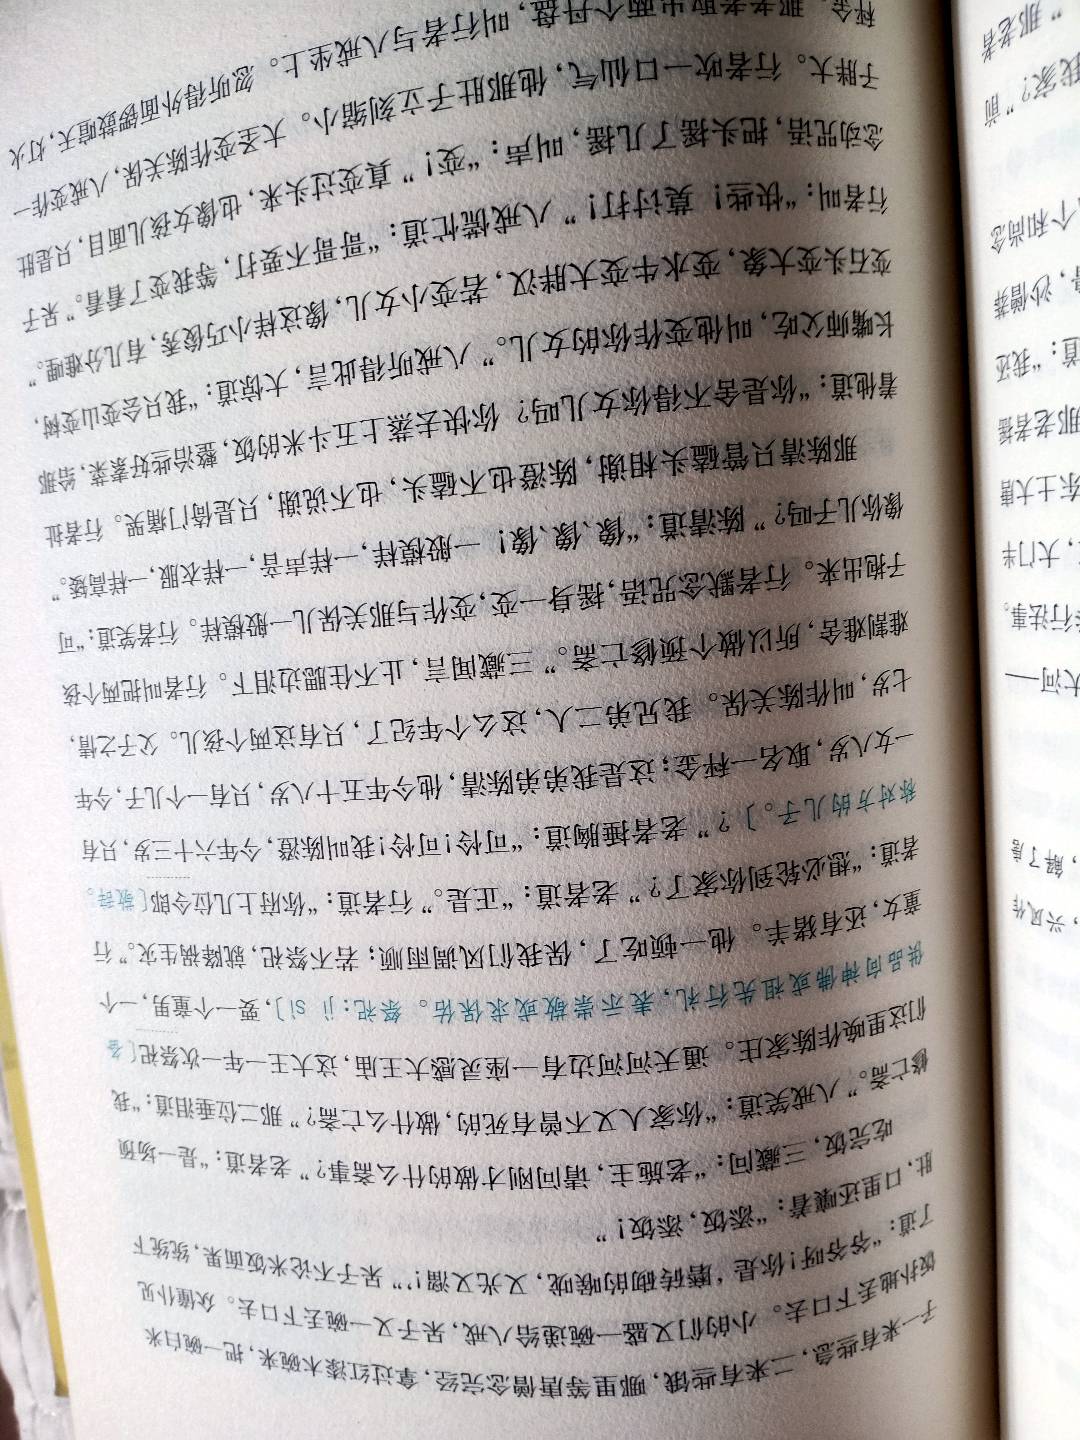 子一来有些急，二来有些饿，哪里等唐僧念完经，拿过红漆木碗来，把一碗白米
饭扑地丢下口去。小的们又盛一碗递给八戒，呆子又一碗丢下口去。众僮仆见
了道：“爷爷呀！你是‘磨砖砌的喉咙，又光又溜！’”呆子不论米饭面果，统统下
肚，口里还嚷着：“添饭，添饭！”
吃完饭，三藏问：“老施主，请问刚才做的什么斋事？”老者道：“是一场预
修亡斋。”八戒笑道：“你家人又不曾有死的，做什么亡斋？”那二位垂泪道：“我
们这里唤作陈家庄。通天河河边有一座灵感大王庙，这大王一年一次祭祀〔备
供品向神佛或祖先行礼，表示崇敬或求保佑。祭祀：jì sì〕，要一个童男，一个
童女，还有猪羊。他一顿吃了，保我们风调雨顺；若不祭祀，就降祸生灾。”行
者道：“想必轮到你家了？”老者道：“正是。”行者道：“你府上几位令郎〔敬辞。
称对方的儿子。〕？”老者捶胸道：“可怜！可怜！我叫陈澄，今年六十三岁，只有
一女八岁，取名一秤金；这是我弟弟陈清，他今年五十八岁，只有一个儿子，今年
七岁，叫作陈关保。我兄弟二人，这么个年纪了，只有这两个孩儿。父子之情，
难割难舍，所以做个预修亡斋。”三藏闻言，止不住腮边泪下。行者叫把两个孩
子抱出来。行者默念咒语，摇身一变，变作与那关保儿一般模样。行者笑道：“可
像你儿子吗？”陈清道：“像、像、像！一般模样，一样声音，一样衣服，一样高矮。”
那陈清只管磕头相谢，陈澄也不磕头，也不说谢，只是倚门痛哭。行者扯
着他道：“你是舍不得你女儿吗？你快去蒸上五斗米的饭，整治些好素菜，给那
长嘴师父吃，叫他变作你的女儿。”八戒听得此言，大惊道：“我只会变山变树，
变石头变大象，变水牛变大胖汉，若变小女儿，像这样小巧俊秀，有几分难哩。”
行者叫：“快些！莫讨打！”八戒慌忙道：“哥哥不要打，等我变了看看。”呆子
念动咒语，把头摇了几摇，叫声：“变！”真变过头来，也像女孩儿面目，只是肚
子胖大。行者吹一口仙气，他那肚子立刻缩小。大圣变作陈关保，八戒变作一
秤金，那老者取出两个丹盘，叫行者与八戒坐上。忽听得外面锣鼓喧天，灯火
，兴风作
，解了唐
大河——
行法事。
，大门半
东土大唐
那老者摇
道：“我还
，沙僧弄
个和尚念
我家？”前
”那老者